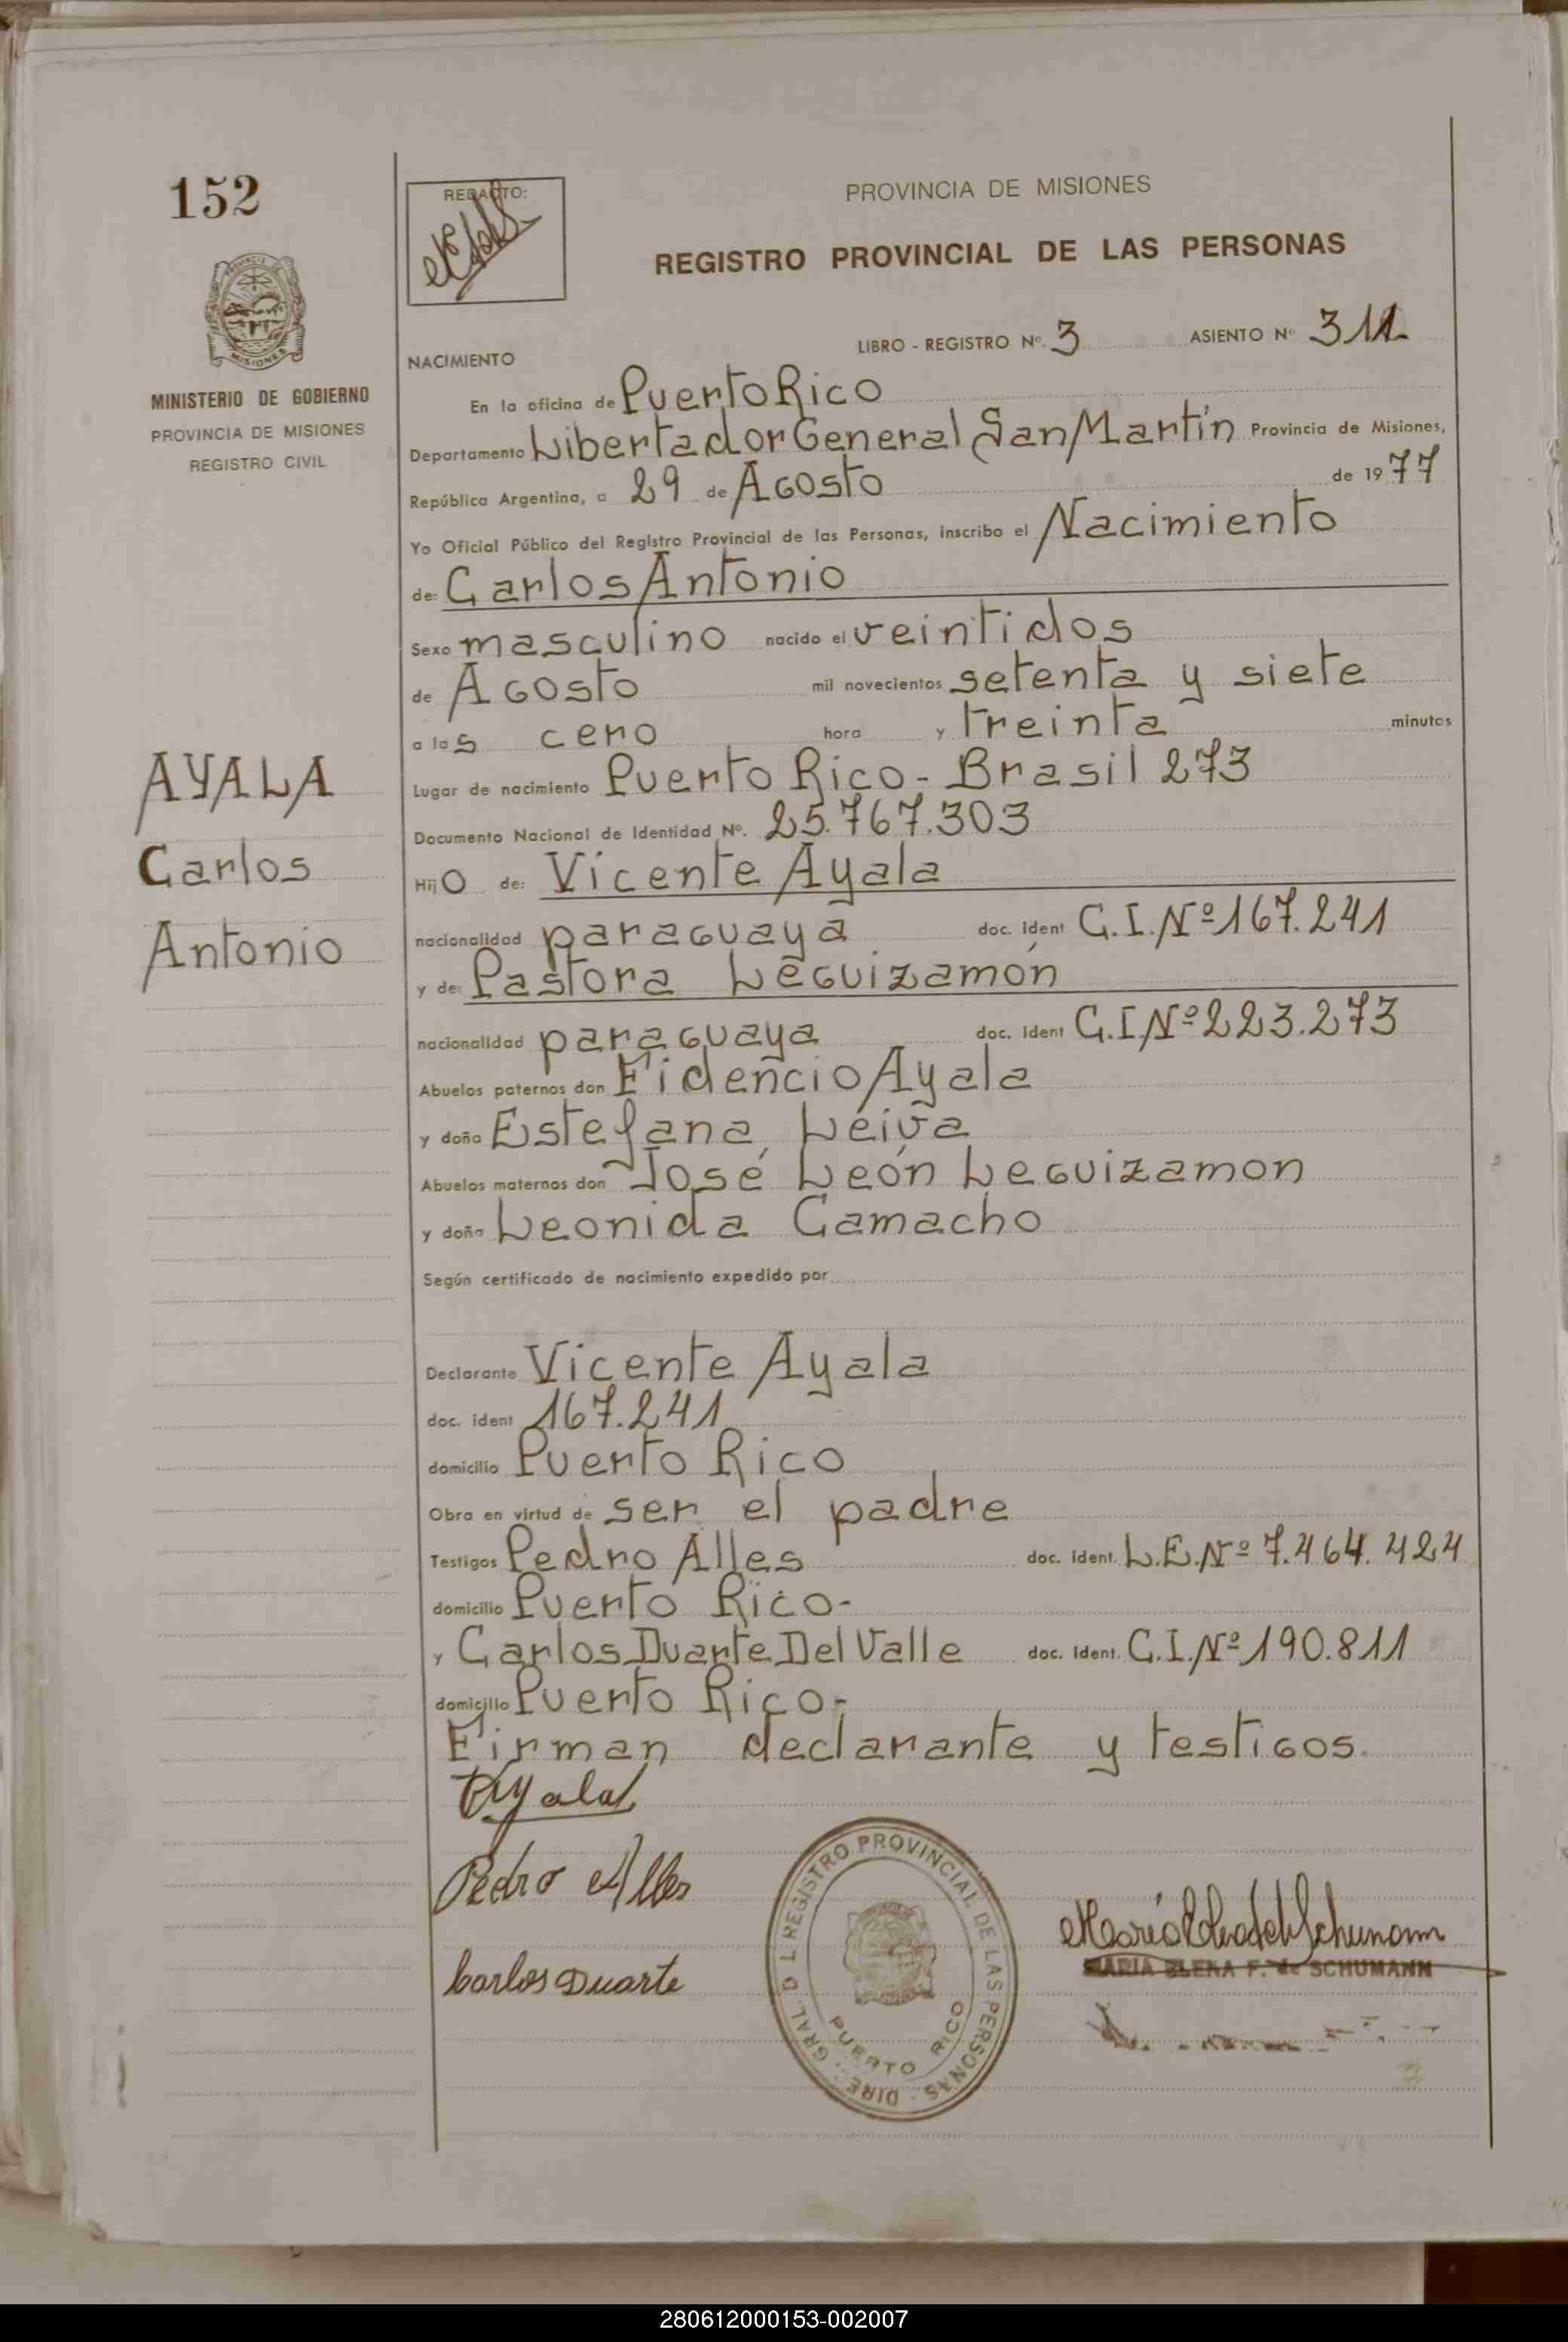 152
REDACTO:
PROVINCIA DE MISIONES
REGISTRO PROVINCIAL DE LAS PERSONAS
MISIONES
MINISTERIO DE GOBIERNO
PROVINCIA DE MISIONES
REGISTRO CIVIL
LIBRO - REGISTRO Nº. 3 ASIENTO Nº 311
NACIMIENTO
En la oficina de Puerto Rico
Departamento Libertador General San Martín Provincia de Misiones,
República Argentina, a 29 de Agosto de 1977
Yo Oficial Público del Registro Provincial de las Personas, inscribo el Nacimiento
de: Carlos Antonio
Sexo masculino nacido el veintidos
de Agosto mil novecientos setenta y siete
a las cero hora y treinta minutos
AYALA
Carlos
Antonio
Lugar de nacimiento Puerto Rico - Brasil 273
Documento Nacional de Identidad Nº. 25.767.303
Hijo de: Vicente Ayala
nacionalidad paraguaya doc. ident C.I.Nº 167.241
y de: Pastora Leguizamón
nacionalidad paraguaya doc. ident C.I.Nº 223.273
Abuelos paternos don Fidencio Ayala
y doña Estefana Leiva
Abuelos maternos don José León Leguizamon
y doña Leonida Camacho
Según certificado de nacimiento expedido por
Declarante Vicente Ayala
doc. ident 167.241
domicilio Puerto Rico
Obra en virtud de ser el padre
Testigos Pedro Alles doc. ident. L.E.Nº 7.464.424
domicilio Puerto Rico-
y Carlos Duarte Del Valle doc. ident. C.I.Nº 190.811
domicilio Puerto Rico-
Firman declarante y testigos.
Ayala
Pedro Alles
Carlos Duarte
DIREC. GRAL. D L REGISTRO PROVINCIAL DE LAS PERSONAS -
PUERTO RICO
MARIA ELENA F. de SCHUMANN
280612000153-002007